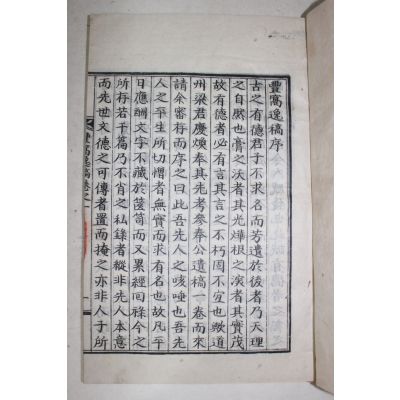 豐窩逸稿序
古之有德君子不求名而芳遺於後者乃天理
之自然也膏之沃者其光燁根之演者其實茂
故有德者必有言其言之不朽固不宜也歟道
州梁君慶煥奉其先考參奉公遺稿一卷而來
請余審存而序之曰此吾先人之咳唾也吾先
人之平生所切慴者無實而求有名也故凡平
日應酬文字不藏於篋笥而又累經回祿今之
所存若干篇乃不肖之私錄者縱非先人本意
而先世文德之可傳者置而掩之亦非人子所
豐窩逸稿卷之一